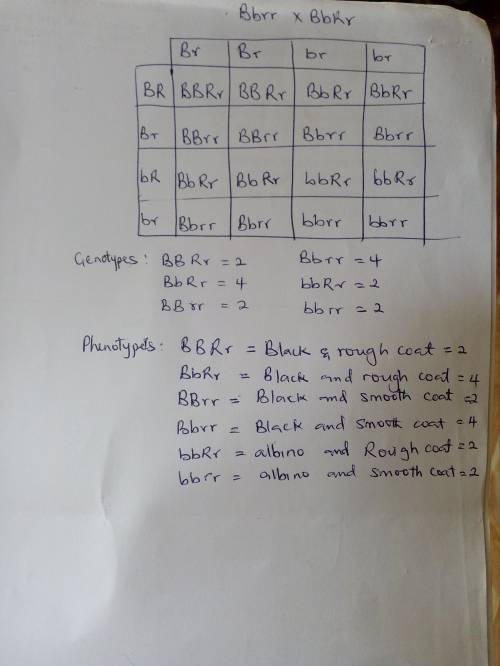 Bbrr x BbRr
Br Br br br
BR BBRr BBRr BbRr BbRr
Br BBrr BBrr Bbrr Bbrr
bR BbRr BbRr bbRr bbRr
br Bbrr Bbrr bbrr bbrr
Genotypes: BBRr = 2 Bbrr = 4
BbRr = 4 bbRr = 2
BBrr = 2 bbrr = 2
Phenotypes: BBRr = Black & rough coat = 2
BbRr = Black and rough coat = 4
BBrr = Black and smooth coat = 2
Bbrr = Black and smooth coat = 4
bbRr = albino and Rough coat = 2
bbrr = albino and smooth coat = 2